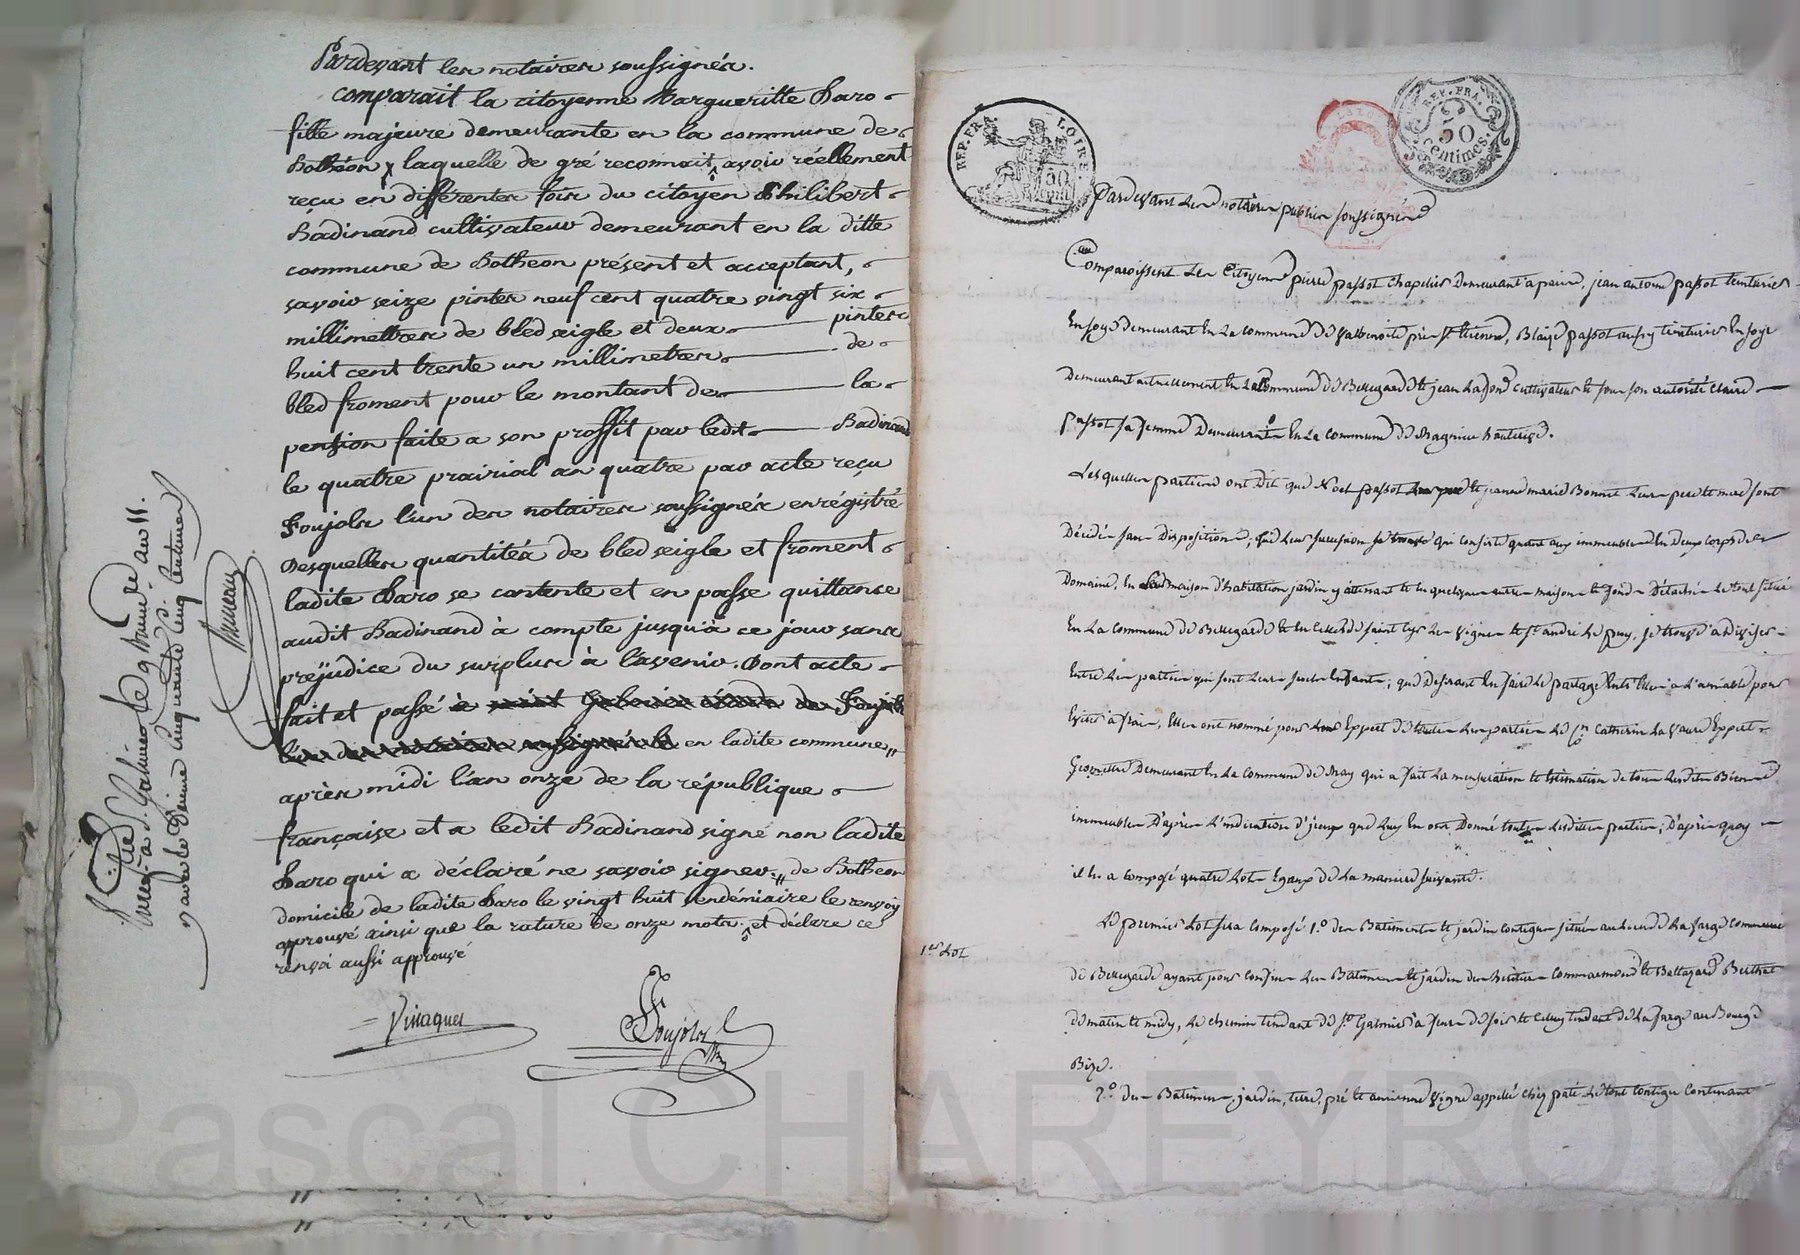 Pardevant les notaires soussignés.
comparait la citoyenne Margueritte Faro
fille majeure demeurante en la commune de
Botheon, laquelle de gré reconnait, avoir réellement
reçu en différentes fois du citoyen Philibert
Badinand cultivateur demeurant en la ditte
commune de Botheon présent et acceptant,
savoir seize pintes neuf cent quatre vingt six
millimettres de bled seigle et deux pintes
huit cent trente un millimetres de
bled froment pour le montant de la
pension faite a son proffit par ledit Badinand
le quatre prairial an quatre par acte reçu
Foujols l'un des notaires soussignés enrégistré
desquelles quantités de bled seigle et froment
ladite Faro se contente et en passe quittance
audit Badinand à compte jusqu'à ce jour sans
préjudice du surplus à l'avenir. Dont acte
fait et passé en ladite commune
après midi l'an onze de la république
française et a ledit Badinand signé non ladite
Faro qui a déclaré ne savoir signer de Botheon
domicile de ladite Faro le vingt huit vendémiaire le renvoy
approuvé ainsi que la rature de onze mots. et déclare ce
renvoi aussi approuvé
Vinaques
Foujols
an 11.
REP. FRA. LOIRE
50
REP. FRA.
50
centimes.
Pardevant Les notaires publics soussignés
Comparoissent Les Citoyens pierre passot chapelier Demeurant a paris, jean antoine passot teinturier
En soye demeurant En La commune de Valbenoite près St. Etienne, Blaize passot aussy teinturier En soye
Demeurant actuellement En La Commune de Bellegarde et jean Lafond cultivateur et sous son autorité Claire
passot sa femme Demeurants En La commune de Magnieu hauterive.
Lesquelles parties ont Dit que Noel passot et jeanne marie Bonnet Leurs pere et mere sont
Décédés sans Disposition, que Leur succession qui consiste quant aux immeubles En Deux corps de
Domaine, En maison d'habitation jardin y attenant et En quelques autres maisons et fonds Détachés Le tout situé
En La Commune de Bellegarde et En Celles de saint Cyr Les Vignes et St. andré Le puy, se trouve a diviser
Entre Les parties qui sont Leurs seuls Enfants; que Desirant En faire Le partage Entr'Elles a L'amiable pour
Eviter a frais, Elles ont nommé pour Expert de toutes Les parties Le Cn. Catherin La Vaure Expert
Geometre Demeurant En La Commune de qui a fait La mensuration et Estimation de tous Lesdits Biens
immeubles D'après L'indication d'iceux que Luy En ont Donné toutes Lesdittes parties; D'après quoy
il En a composé quatre Lots Egaux de La maniere suivante.
1er. Lot
Le premier Lot sera composé 1.° des Batiments et jardin contigus situés au Lieu de La farge commune
de Bellegarde ayant pour confins Les Batiments et jardin des heritiers Commarmond et Baltazard Berthet
de matin et midy, Le chemin tendant de St. Galmier à feurs de soir et Celuy tendant de La farge au Bourg
Bize.
2.° des Batiments, jardin, terre, pré et ancienne Vigne appellé chez paté Le tout contigu Contenant
Pascal CHAREYRON